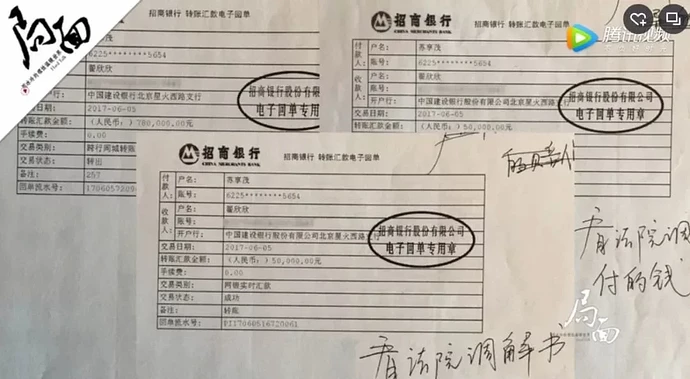 局面
招商银行 转账汇款电子回单
付款人：
户名：
账号：
6225 5654
收款人：
翟欣欣
账号：
开户行：
中国建设银行北京星火西路支行
交易日期：
2017-06-05
转账汇款金额：
（人民币：）780,000.00元
手续费：
0.00
交易类别：
跨行同城转账
交易状态：
转出
备注：
257
回单流水号：
招商银行股份有限公司
电子回单专用章
腾讯视频
招商银行
CHINA MERCHANTS BANK
招商银行 转账汇款电子回单
付款人
户名：
苏享茂
账号：
6225 5654
翟欣欣
中国建设银行股份有限公司北京星火西路支
2017-06-05
（人民币：）50,000.00元
招商银行股份有限公司
电子回单专用章
看法院调
付的钱
招商银行
CHINA MERCHANTS BANK
招商银行 转账汇款电子回单
付款人：
户名：
苏享茂
账号：
6225 5654
收款人：
户名：
翟欣欣
账号：
开户行：
中国建设银行股份有限公司北京星火西路支行
交易日期：
2017-06-05
转账汇款金额：
（人民币：）50,000.00元
手续费：
0.00
交易类别：
网银实时汇款
交易状态：
成功
备注：
转账
回单流水号：
招商银行股份有限公司
电子回单专用章
看法院调解书
局面